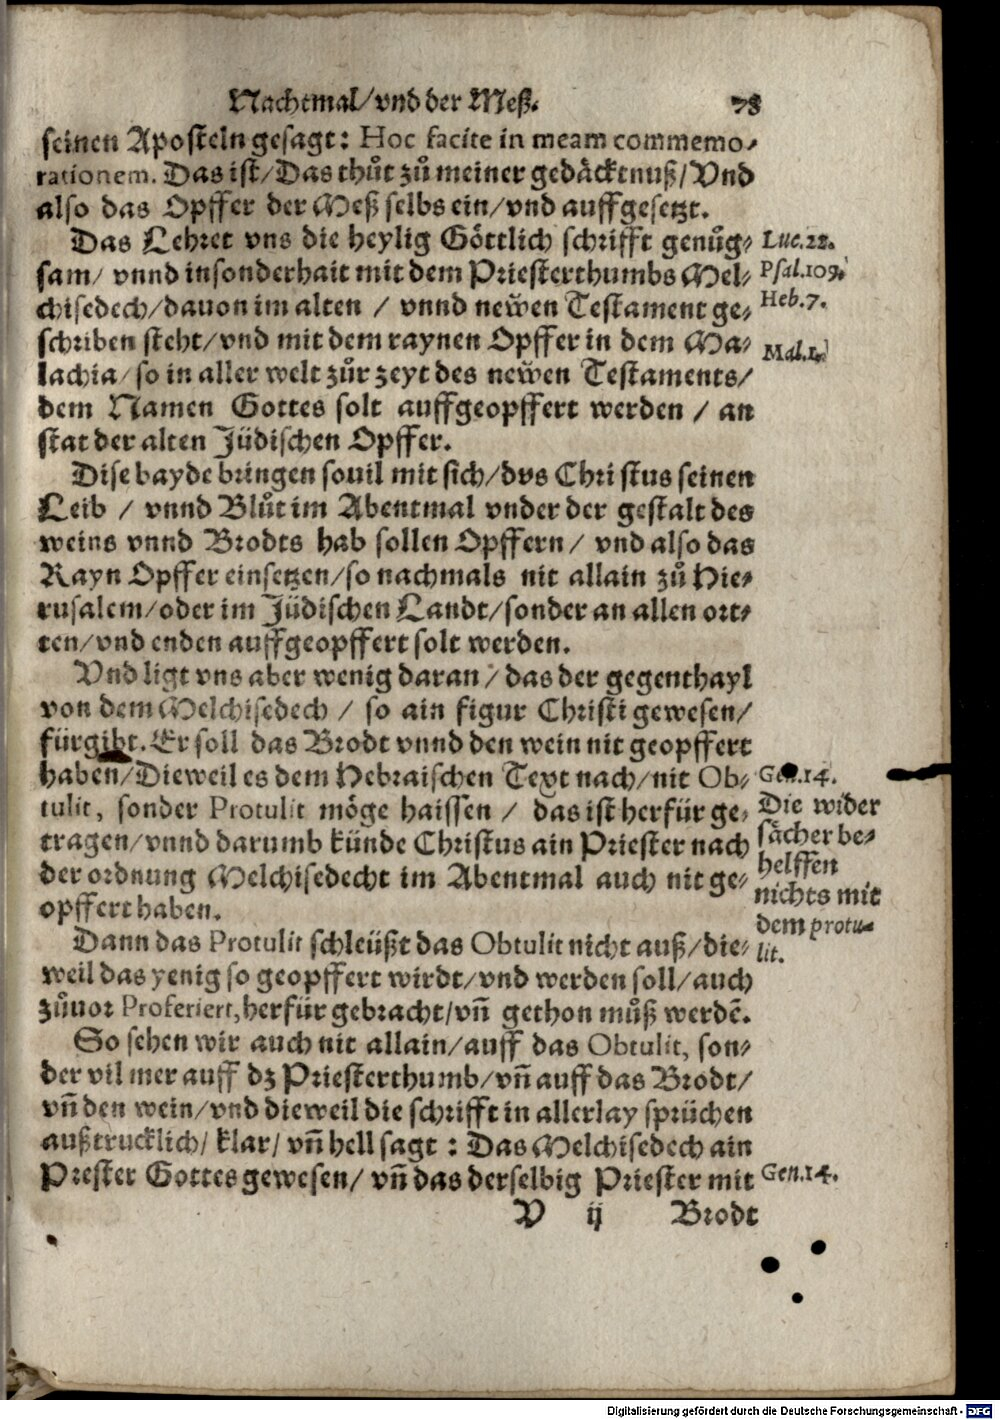 Nachtmal/vnd der Meß. 78
seinen Aposteln gesagt: Hoc facite in meam commemo-
rationem. Das ist/Das thůt zů meiner gedäcktnuß/Vnd
also das Opffer der Meß selbs ein/vnd auffgesetzt.
Das Lehret vns die heylig Göttlich schrifft genůg-
Luc.22.
sam/ vnnd insonderhait mit dem Priesterthumbs Mel-
Psal.109.
chisedech/dauon im alten / vnnd newen Testament ge-
Heb.7.
schriben steht/vnd mit dem raynen Opffer in dem Ma-
Mal.1.
lachia/so in aller welt zůr zeyt des newen Testaments/
dem Namen Gottes solt auffgeopffert werden / an
stat der alten Jüdischen Opffer.
Dise bayde bringen souil mit sich/dvs Christus seinen
Leib / vnnd Blůt im Abentmal vnder der gestalt des
weins vnnd Brodts hab sollen Opffern/ vnd also das
Rayn Opffer einsetzen/so nachmals nit allain zů Hie-
rusalem/oder im Jüdischen Landt/sonder an allen ort-
ten/vnd enden auffgeopffert solt werden.
Vnd ligt vns aber wenig daran/das der gegenthayl
von dem Melchisedech / so ain figur Christi gewesen/
fürgibt. Er soll das Brodt vnnd den wein nit geopffert
haben/Dieweil es dem Hebraischen Text nach/nit Ob-
Gen.14.
tulit, sonder Protulit möge haissen / das ist herfür ge-
tragen/vnnd darumb künde Christus ain Priester nach
der ordnung Melchisedecht im Abentmal auch nit ge-
opffert haben.
Die wider
sächer be-
helffen
nichts mit
dem protu-
lit.
Dann das Protulit schleüßt das Obtulit nicht auß/die-
weil das yenig so geopffert wirdt/vnd werden soll/auch
zůuor Proferiert,herfür gebracht/vñ gethon můß werdē.
So sehen wir auch nit allain/auff das Obtulit, son-
der vil mer auff dz Priesterthumb/vñ auff das Brodt/
vñ den wein/vnd dieweil die schrifft in allerlay sprüchen
außtrucklich/ klar/ vñ hell sagt : Das Melchisedech ain
Prester Gottes gewesen/ vñ das derselbig Priester mit
Gen.14.
V ij Brodt
Digitalisierung gefördert durch die Deutsche Forschungsgemeinschaft - DFG